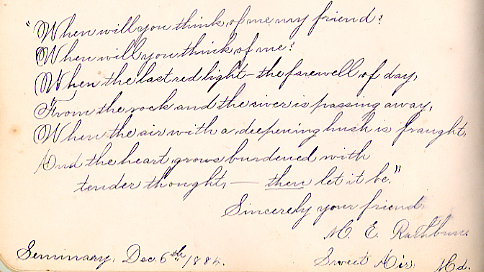 "When will you think of me, my friend?
When will you think of me?
When the last red light – the farewell of day,
From the rock and the river is passing away,
When the air with a deepening hush is fraught,
And the heart grows burdened with
tender thought, — then let it be."
Sincerely your friend,
M. E. Rathbun
Seminary, Dec. 6th, 1884.
Sweet Md.